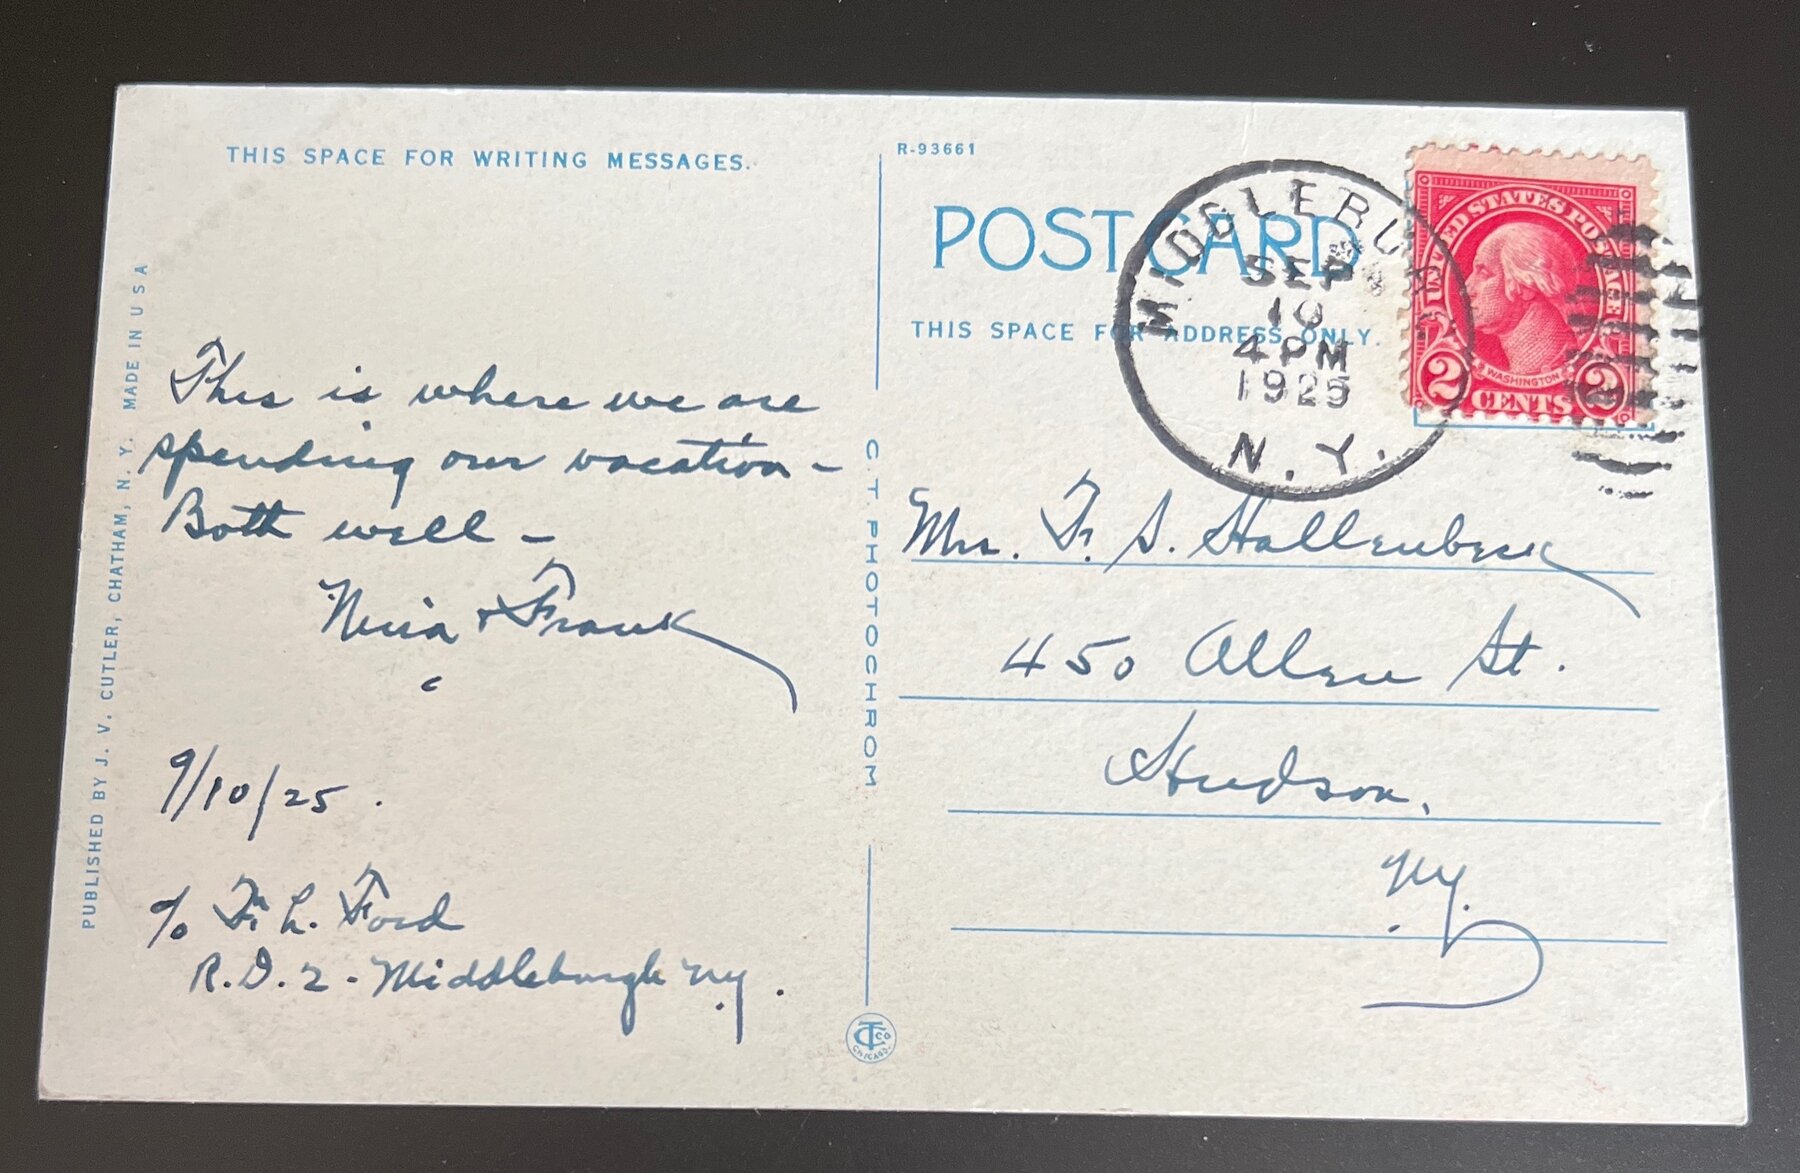 THIS SPACE FOR WRITING MESSAGES.
This is where we are
spending our vacation -
Both well -
Nina + Frank
9/10/25.
c/o F. L. Ford
R.D. 2 - Middleburgh N.Y.
PUBLISHED BY J. V. CUTLER, CHATHAM, N. Y. MADE IN U S A
C. T. PHOTOCHROM
CT Co
CHICAGO.
R-93661
POST CARD
THIS SPACE FOR ADDRESS ONLY.
MIDDLEBURGH
SEP
10
4 PM
1925
N.Y.
UNITED STATES POSTAGE
WASHINGTON
2 CENTS 2
Mrs. F. S. Hallenbeck
450 Allen St.
Hudson,
N.Y.